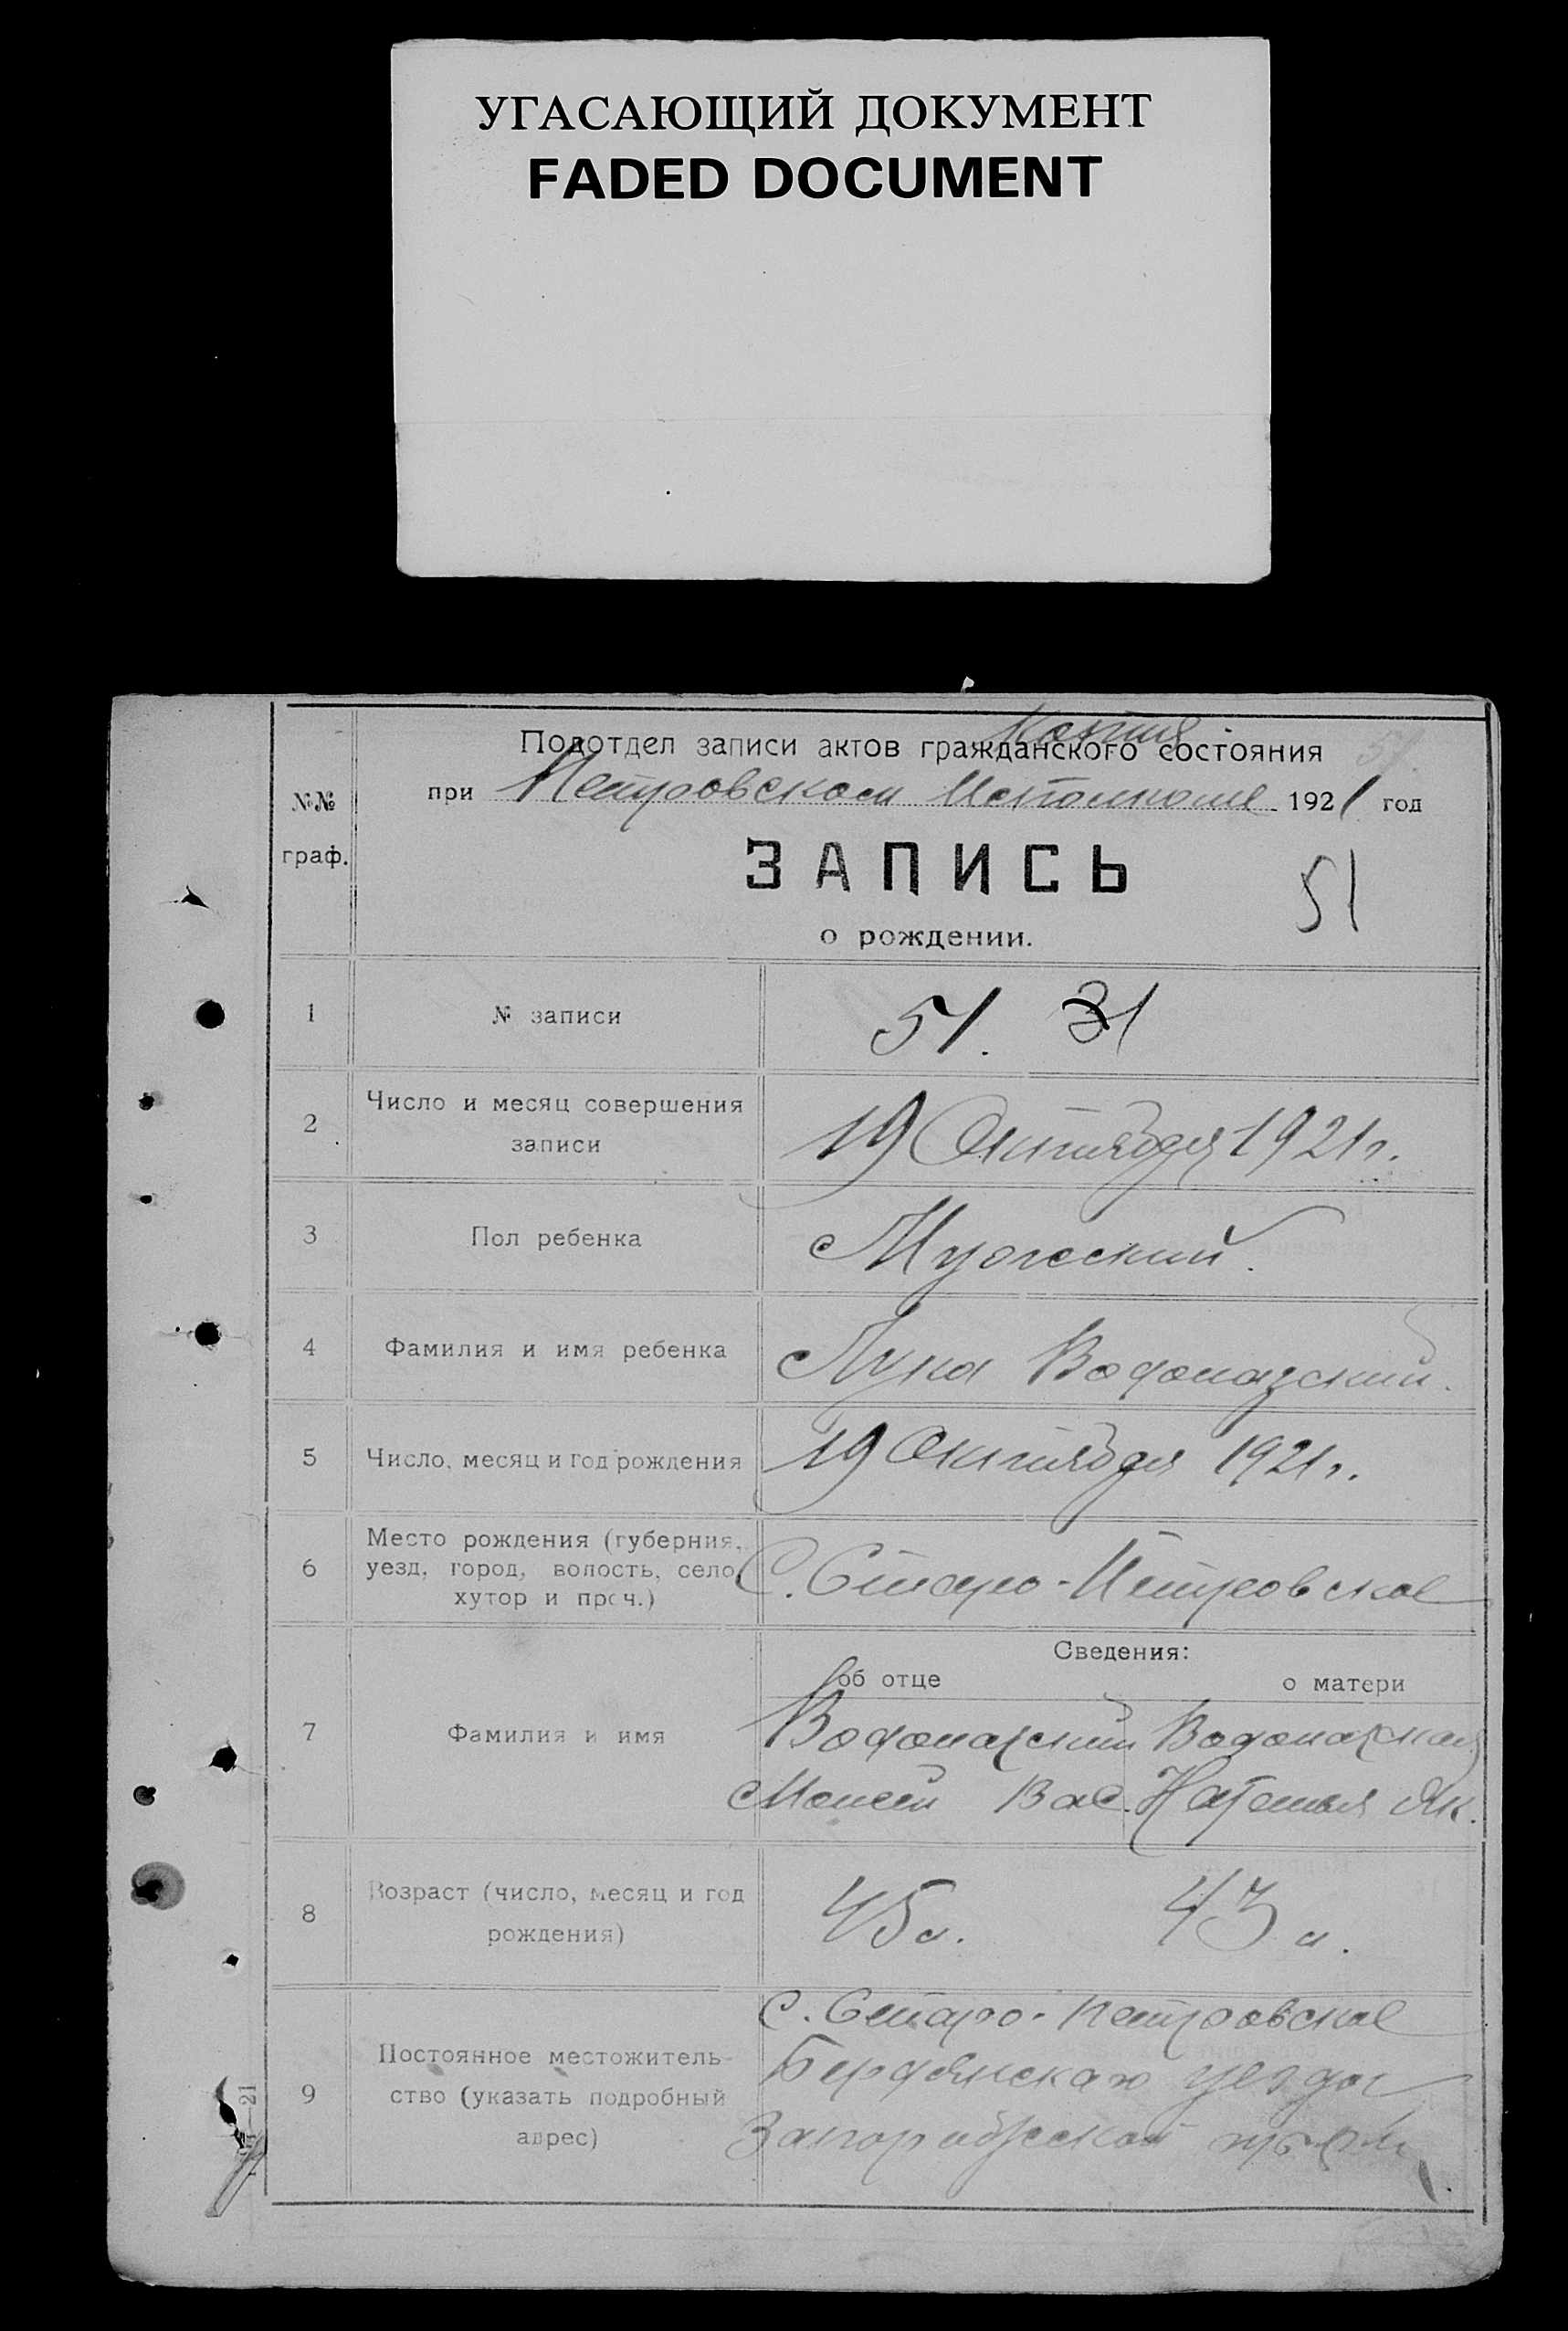 УГАСАЮЩИЙ ДОКУМЕНТ
FADED DOCUMENT
Копия
Подотдел записи актов гражданского состояния
при Петровском Исполкоме 1921 год
№№
граф.
ЗАПИСЬ
51
о рождении.
1 № записи 51. 31
2 Число и месяц совершения
записи
19 Октября 1921 г.
3 Пол ребенка Мужеский.
4 Фамилия и имя ребенка Лука Водопазский.
5 Число, месяц и год рождения 19 Октября 1921 г.
6 Место рождения (губерния,
уезд, город, волость, село,
хутор и проч.)
С. Старо-Петровское
Сведения:
об отце о матери
7 Фамилия и имя
Водопазский Водопазская
Моисей Вас. Наталья Як.
8 Возраст (число, месяц и год
рождения)
45 л. 43 л.
9 Постоянное местожитель-
ство (указать подробный
адрес)
С. Старо-Петровское
Бердянскаго уезда
Запорожской губ.